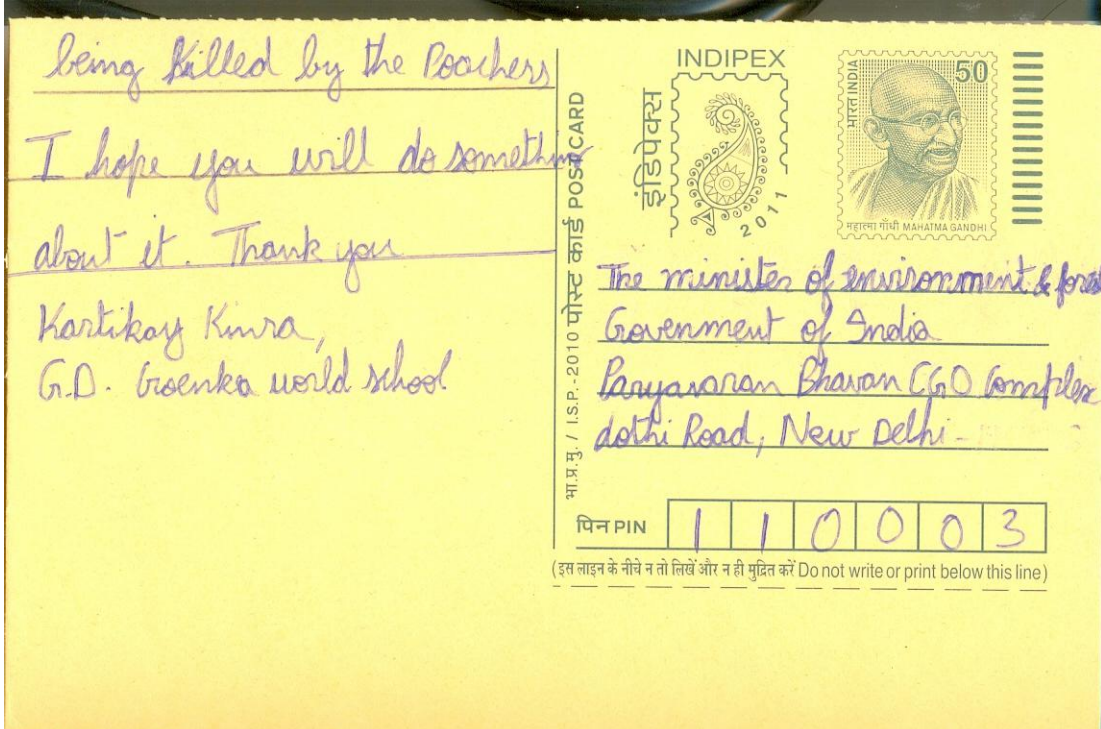 being killed by the Poachers
I hope you will do something
about it. Thank you
Kartikay Kinra,
G.D. Goenka world school
भा.प्र.मु. / I.S.P.-2010 पोस्ट कार्ड POST CARD
INDIPEX
इंडिपेक्स
2011
भारत INDIA
50
महात्मा गाँधी MAHATMA GANDHI
The minister of environment & forest
Govenment of India
Paryavaran Bhavan CGO Complex
dothi Road, New Delhi -
पिन PIN 1 1 0 0 0 3
(इस लाइन के नीचे न तो लिखें और न ही मुद्रित करें Do not write or print below this line)